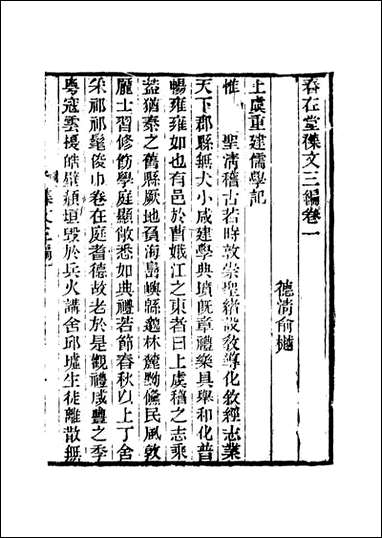 春在堂襍文三編卷一
德清俞樾
上虞重建儒學記
惟 聖清稽古若時敦崇聖緒設敎導化敘經志業
天下郡縣無大小咸建學典瑣旣章禮樂具舉和化普
暢雍雍如也有邑於曹娥江之東者曰上虞稽之志乘
蓋猶秦之舊縣厥地負海嵎嶼縣邈林麓黝儵民風敦
龐士習修飭學庭顯敞悉如典禮若節春秋以上丁舍
釆祁祁髦俊巾卷在庭耆德故老於是觀禮咸豐之季
粵寇雲擾皓壁頳垣毀於兵火講舍邱墟生徒離散無
襍文三編一